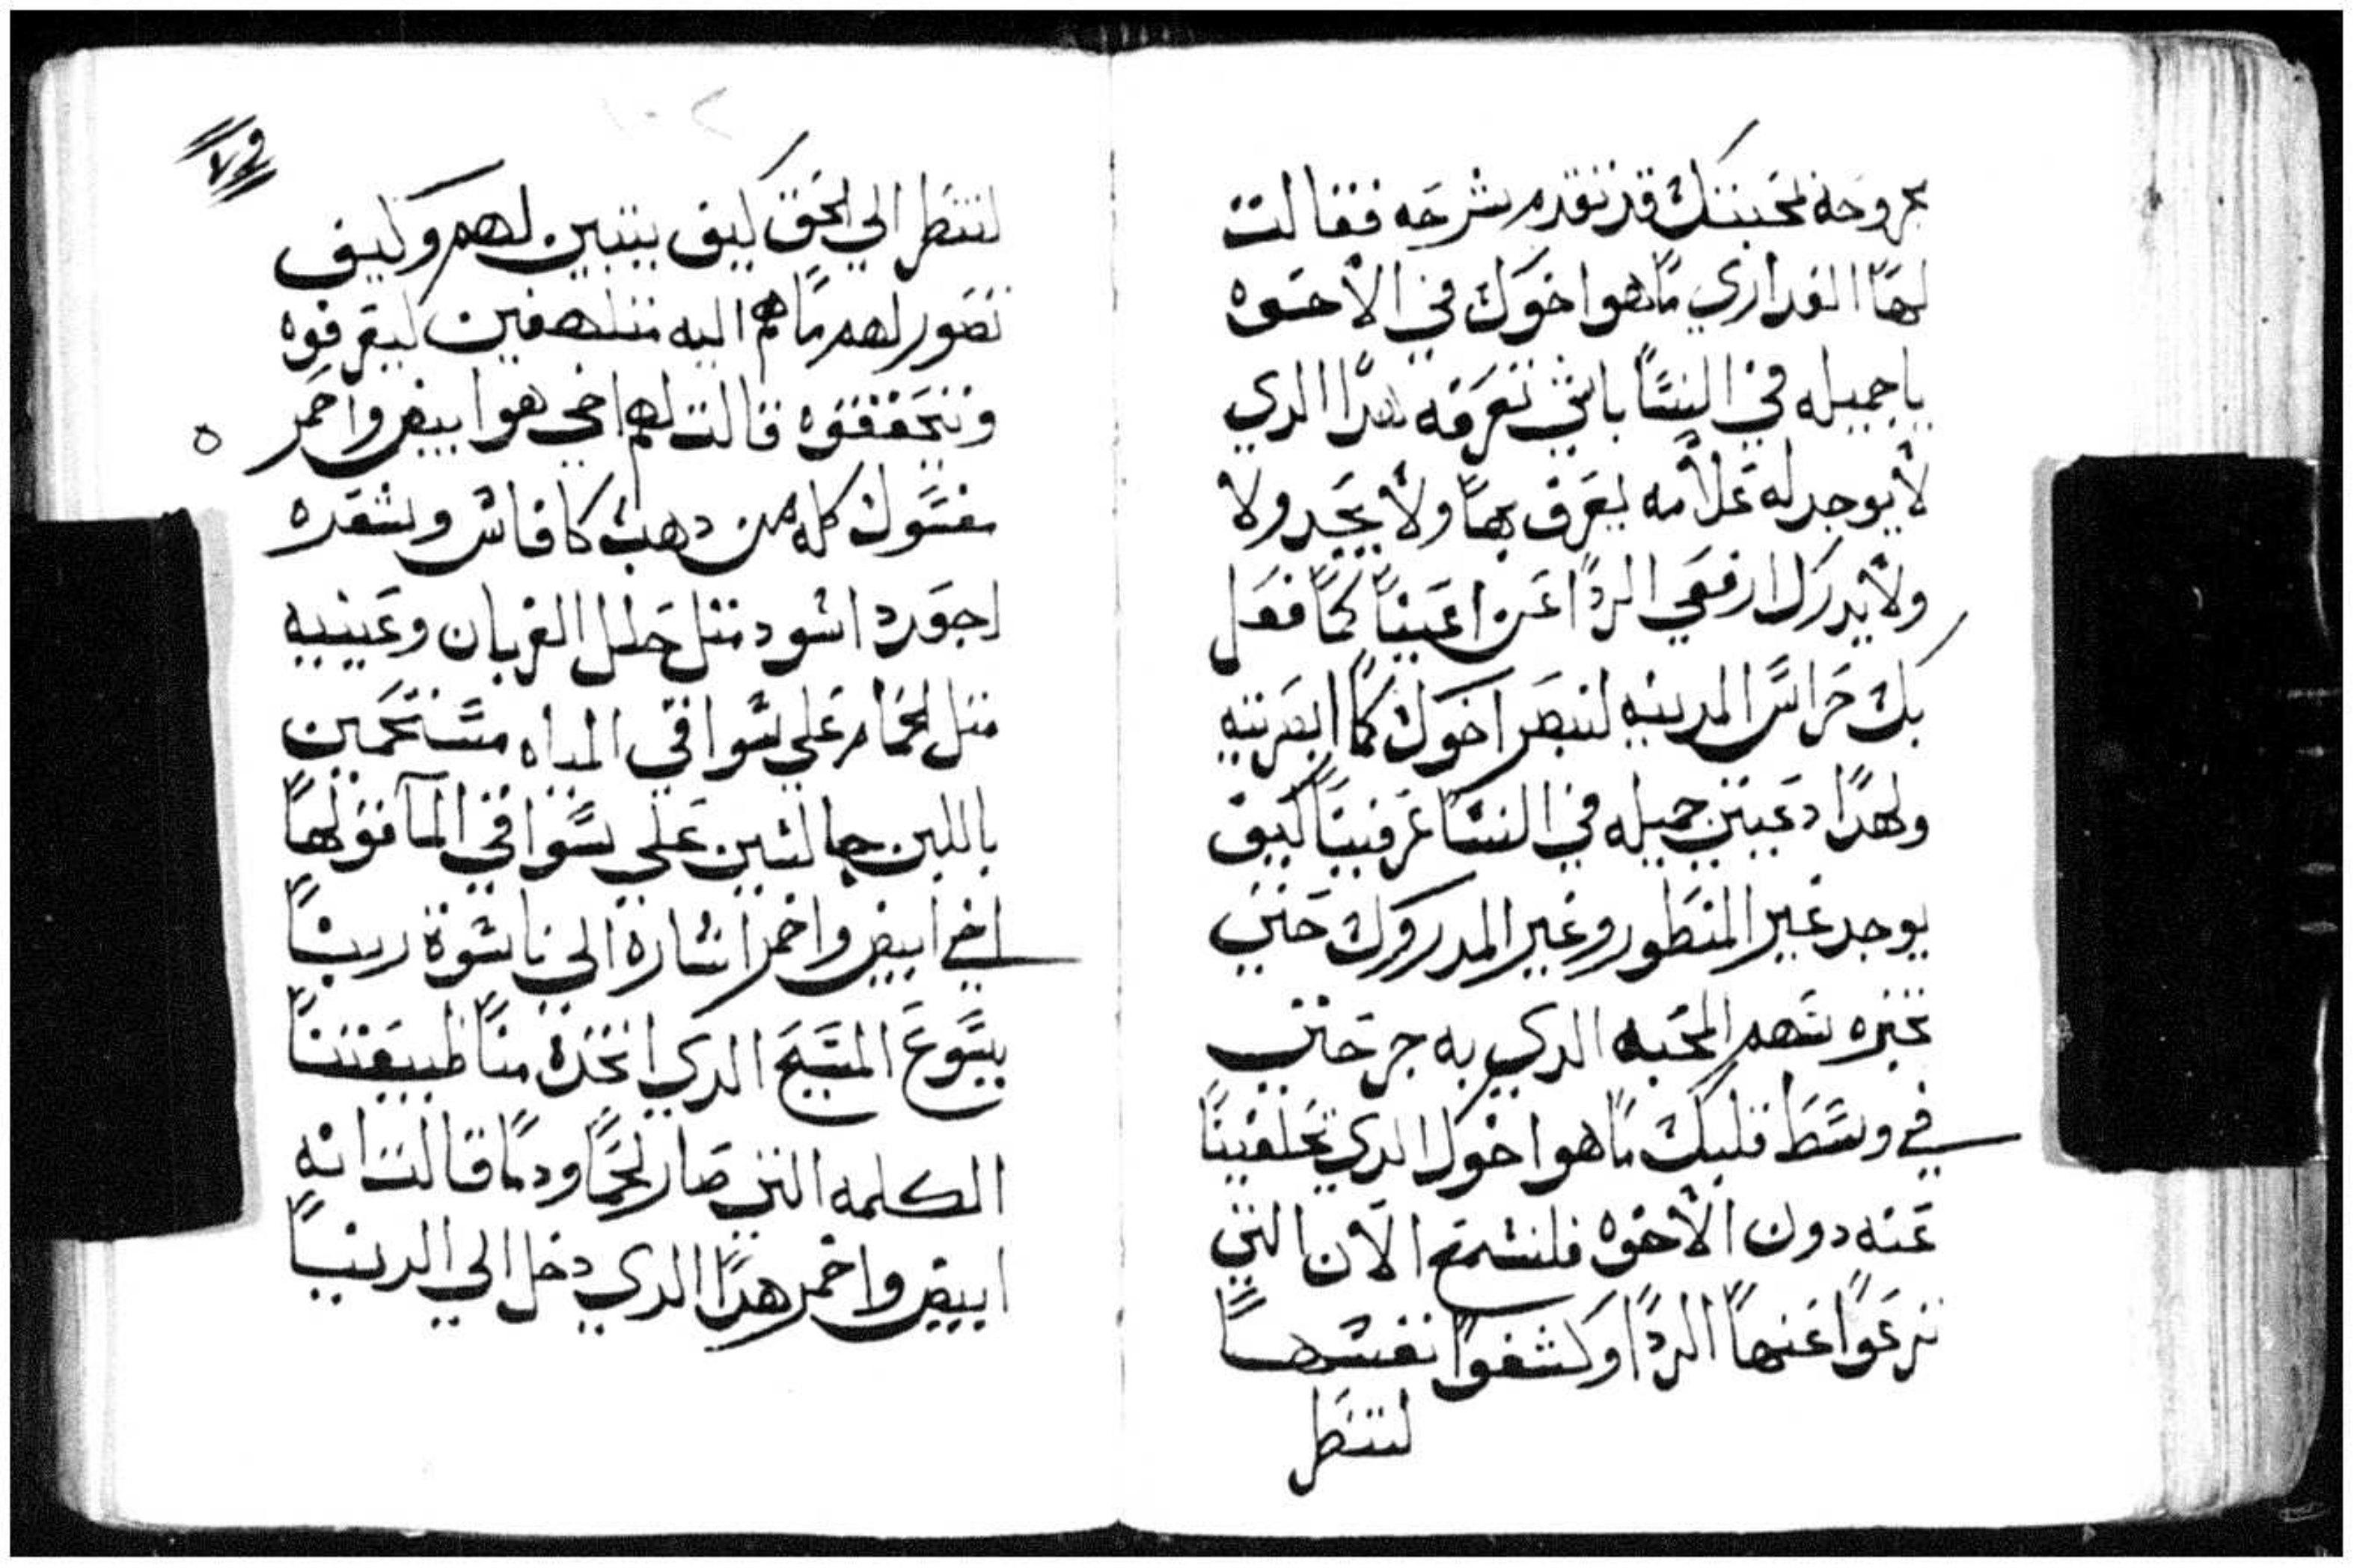 مجروحه لمحبتك قد تقدم شرحه فقالت
لها العداري ما هوا خوك في الاخوه
يا جميله في النسا باشي نعرفه هدا الدي
لا يوجد له علامه يعرف بها ولا يحد ولا
ولا يدرك ارفعي الردا عن اعيننا كما فعل
بك حراس المدينه لننضر اخوك كما ابصرتيه
ولهدا دعيتي جميله في النسا عرفينا كيف
يوجد غير المنطور وغير المدروك حتي
نخبره سهم المحبه الدي به جرحتي
في وسط قلبك ما هو اخوك الدي تحلفينا
عنه دون الاخوه فلنسمع الان التي
نزعوا عنها الردا وكشفوا نفسها
لتنظر
٧٢
لتنظر الي الحق كيف يتبين لهم وكيف
تصور لهم ما هم اليه متلهفين ليعرفوه
ويتحققوه قالت لهم اخي هوا ابيض واحمر
مفسول كله من دهب كافاش وشعره
اجعد اسود متل حلل الغربان وعينيه
متل الحمام علي سواقي المياه مستحمين
باللبن جالسين علي سواقي الما فقولها
اخي ابيض واحمر اشاره الي ناسوة ربنا
يسوع المسيح الدي اتخده منا طبيعتنا
الكلمه التي صار لحما ودما قالت انه
ابيض واحمر هدا الدي دخل الي الدنيا